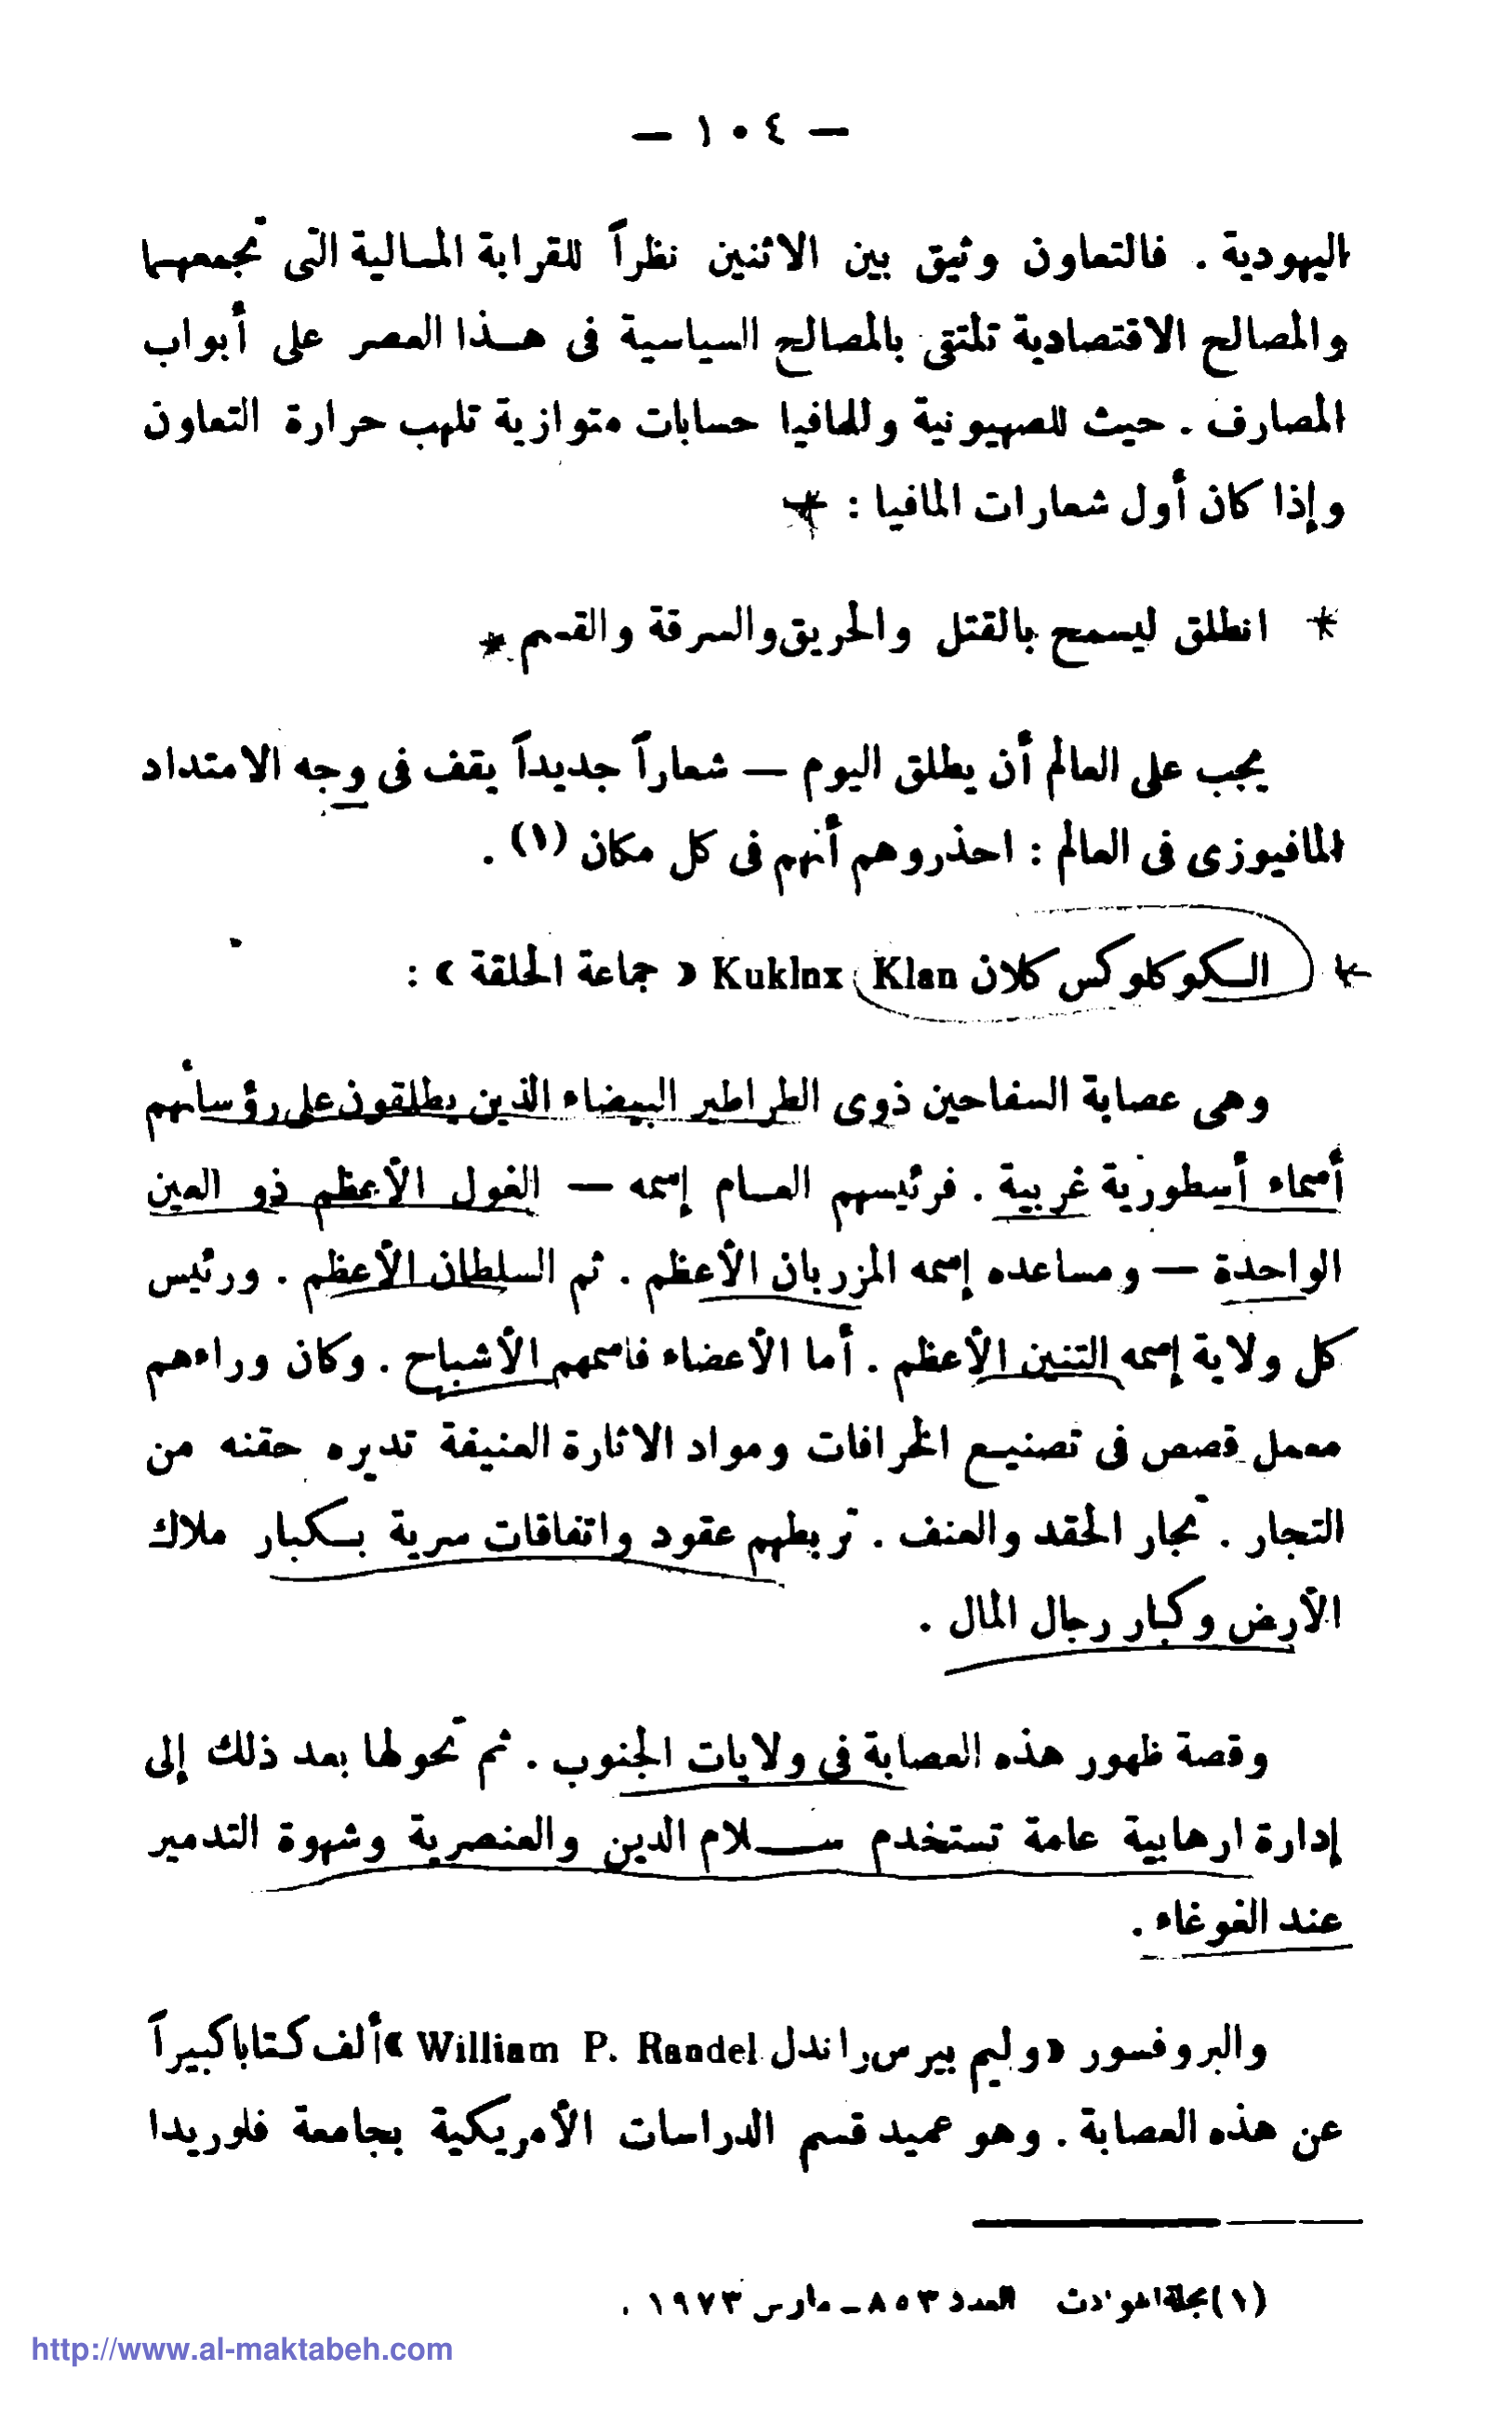 — ١٠٤ —
اليهودية . فالتعاون وثيق بين الاثنين نظراً للقرابة المالية التى تجمعهما
والمصالح الاقتصادية تلتقى بالمصالح السياسية فى هذا العصر على أبواب
المصارف . حيث للصهيونية وللمافيا حسابات متوازية تلهب حرارة التعاون
وإذا كان أول شعارات المافيا : *
* انطلق ليسمح بالقتل والحريق والسرقة والقسم *
يجب على العالم أن يطلق اليوم — شعاراً جديداً يقف فى وجه الامتداد
المافيوزى فى العالم : احذروهم أنهم فى كل مكان (١) .
* الكوكلوكس كلان Kuklux Klan « جماعة الحلقة » :
وهى عصابة السفاحين ذوى الطراطير البيضاء الذين يطلقون على رؤسائهم
أسماء أسطورية غريبة . فرئيسهم العام إسمه — الغول الأعظم ذو العين
الواحدة — ومساعده إسمه المزربان الأعظم . ثم السلطان الأعظم . ورئيس
كل ولاية إسمه التنين الأعظم . أما الأعضاء فاسمهم الأشباح . وكان وراءهم
معمل قصص فى تصنيع الخرافات ومواد الاثارة العنيفة تديره حقنه من
التجار . تجار الحقد والعنف . تربطهم عقود واتفاقات سرية بكبار ملاك
الأرض وكبار رجال المال .
وقصة ظهور هذه العصابة فى ولايات الجنوب . ثم تحولها بعد ذلك إلى
إدارة ارهابية عامة تستخدم سلام الدين والعنصرية وشهوة التدمير
عند الغوغاء .
والبروفسور «وليم بيرس راندل William P. Randel» ألف كتابا كبيراً
عن هذه العصابة . وهو عميد قسم الدراسات الأمريكية بجامعة فلوريدا
(١) مجلة الحوادث العدد ٨٥٣ – مارس ١٩٧٣ .
http://www.al-maktabeh.com